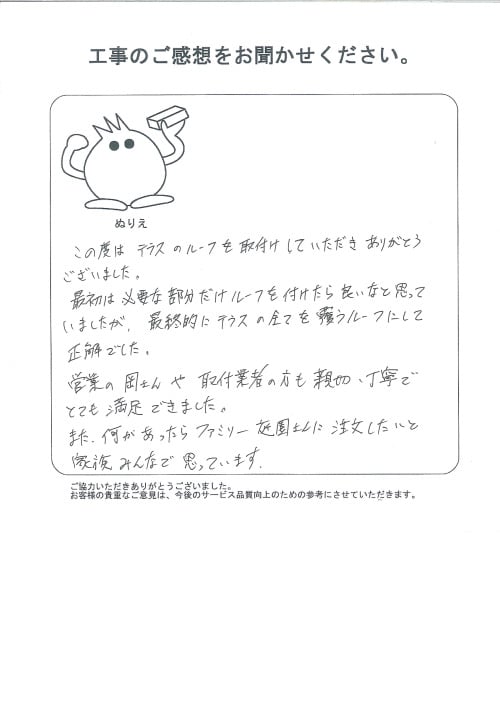 工事のご感想をお聞かせください。
ぬりえ
この度は テラスのルーフを取付けしていただき ありがとう
ございました。
最初は必要な部分だけルーフを付けたら良いなと思って
いましたが、最終的にテラスの全てを覆うルーフにして
正解でした。
営業の岡さんや 取付業者の方も親切、丁寧で
とても満足できました。
また、何かあったらファミリー庭園さんに注文したいと
家族みんなで思っています。
ご協力いただきありがとうございました。
お客様の貴重なご意見は、今後のサービス品質向上のための参考にさせていただきます。